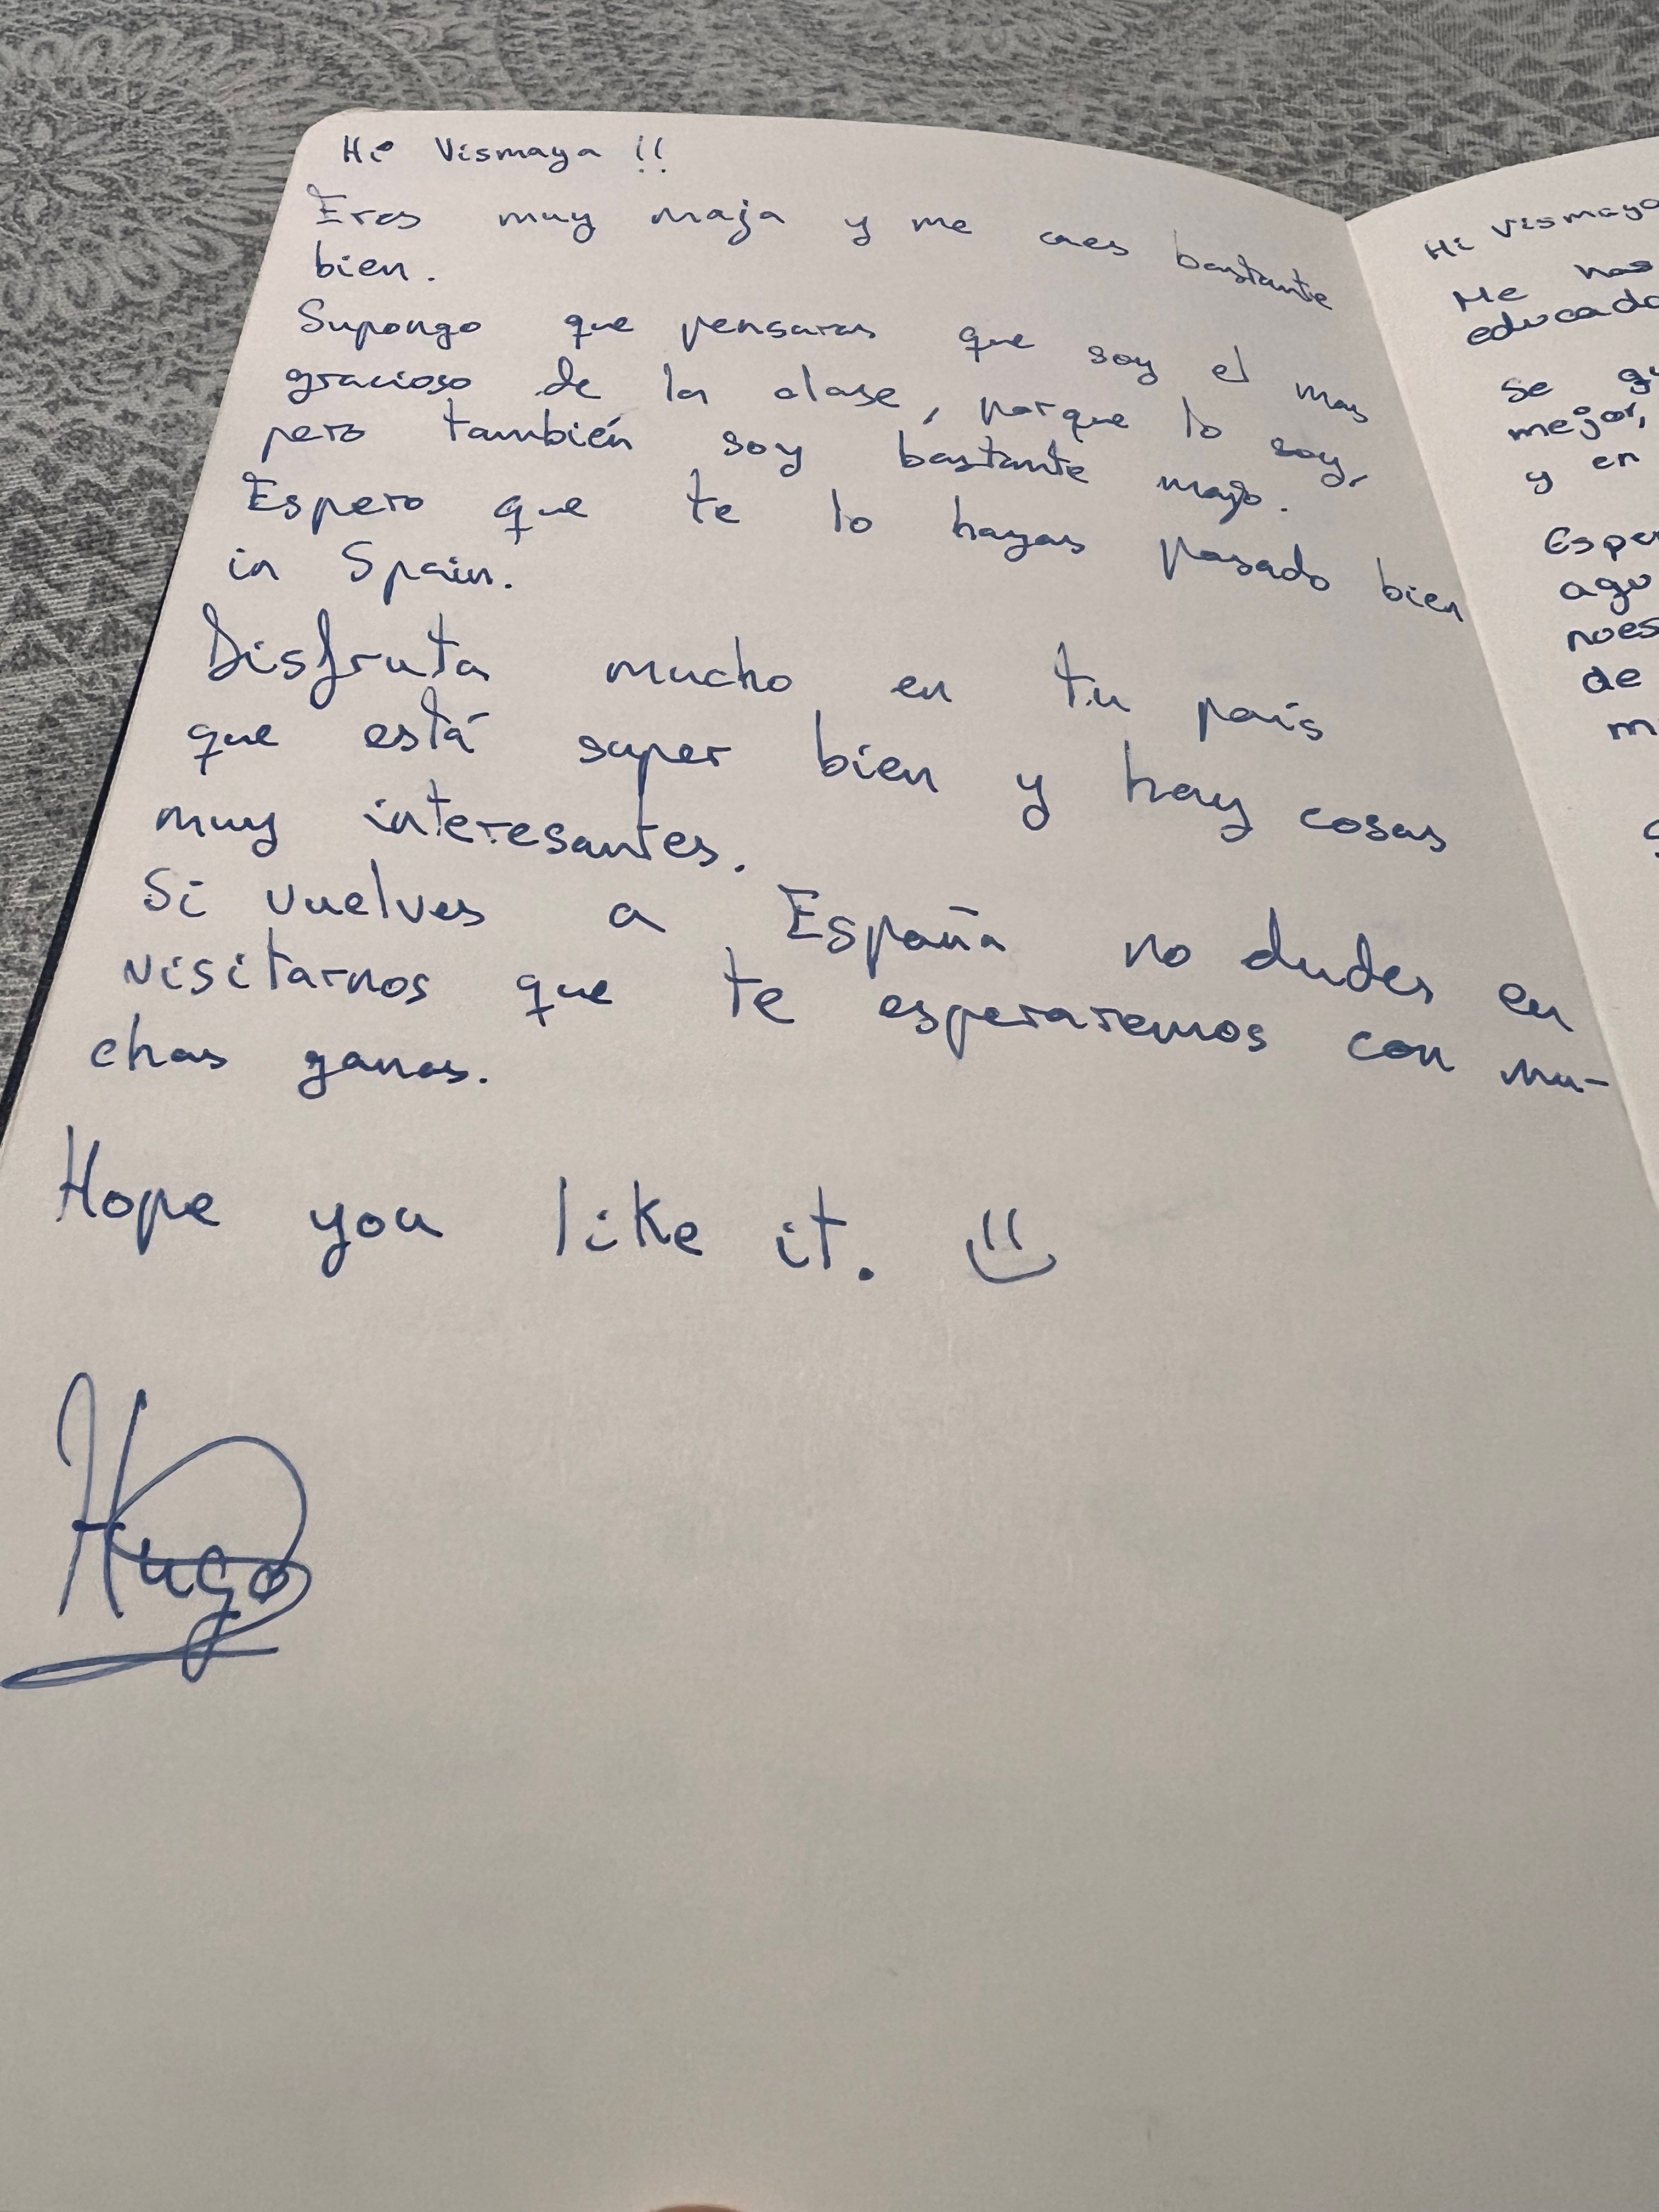 Hi Vismaya !!
Eres muy maja y me caes bastante
bien.
Supongo que pensaras que soy el mas
gracioso de la clase, porque lo soy,
pero también soy bastante majo.
Espero que te lo hayas pasado bien
in Spain.
Disfruta mucho en tu país
que está super bien y hay cosas
muy interesantes.
Si vuelves a España no dudes en
visitarnos que te esperaremos con mu-
chas ganas.
Hope you like it.
Hugo
Hi Vismaya
Me has
educado
se
mejor,
y en
Espe
agu
nues
de
m